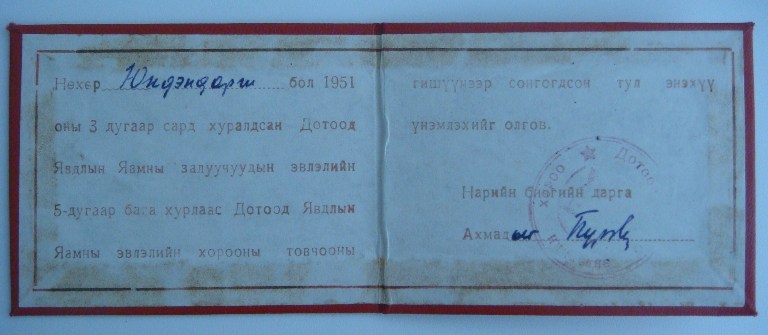 Нөхөр Юндэндорж бол 1951
оны 3 дугаар сард хуралдсан Дотоод
Явдлын Яамны залуучуудын эвлэлийн
5-дугаар бага хурлаас Дотоод Явдлын
Яамны эвлэлийн хорооны товчооны
гишүүнээр сонгогдсон тул энэхүү
үнэмлэхийг олгов.
Нарийн бичгийн дарга
Ахмад
хороо Дотоо